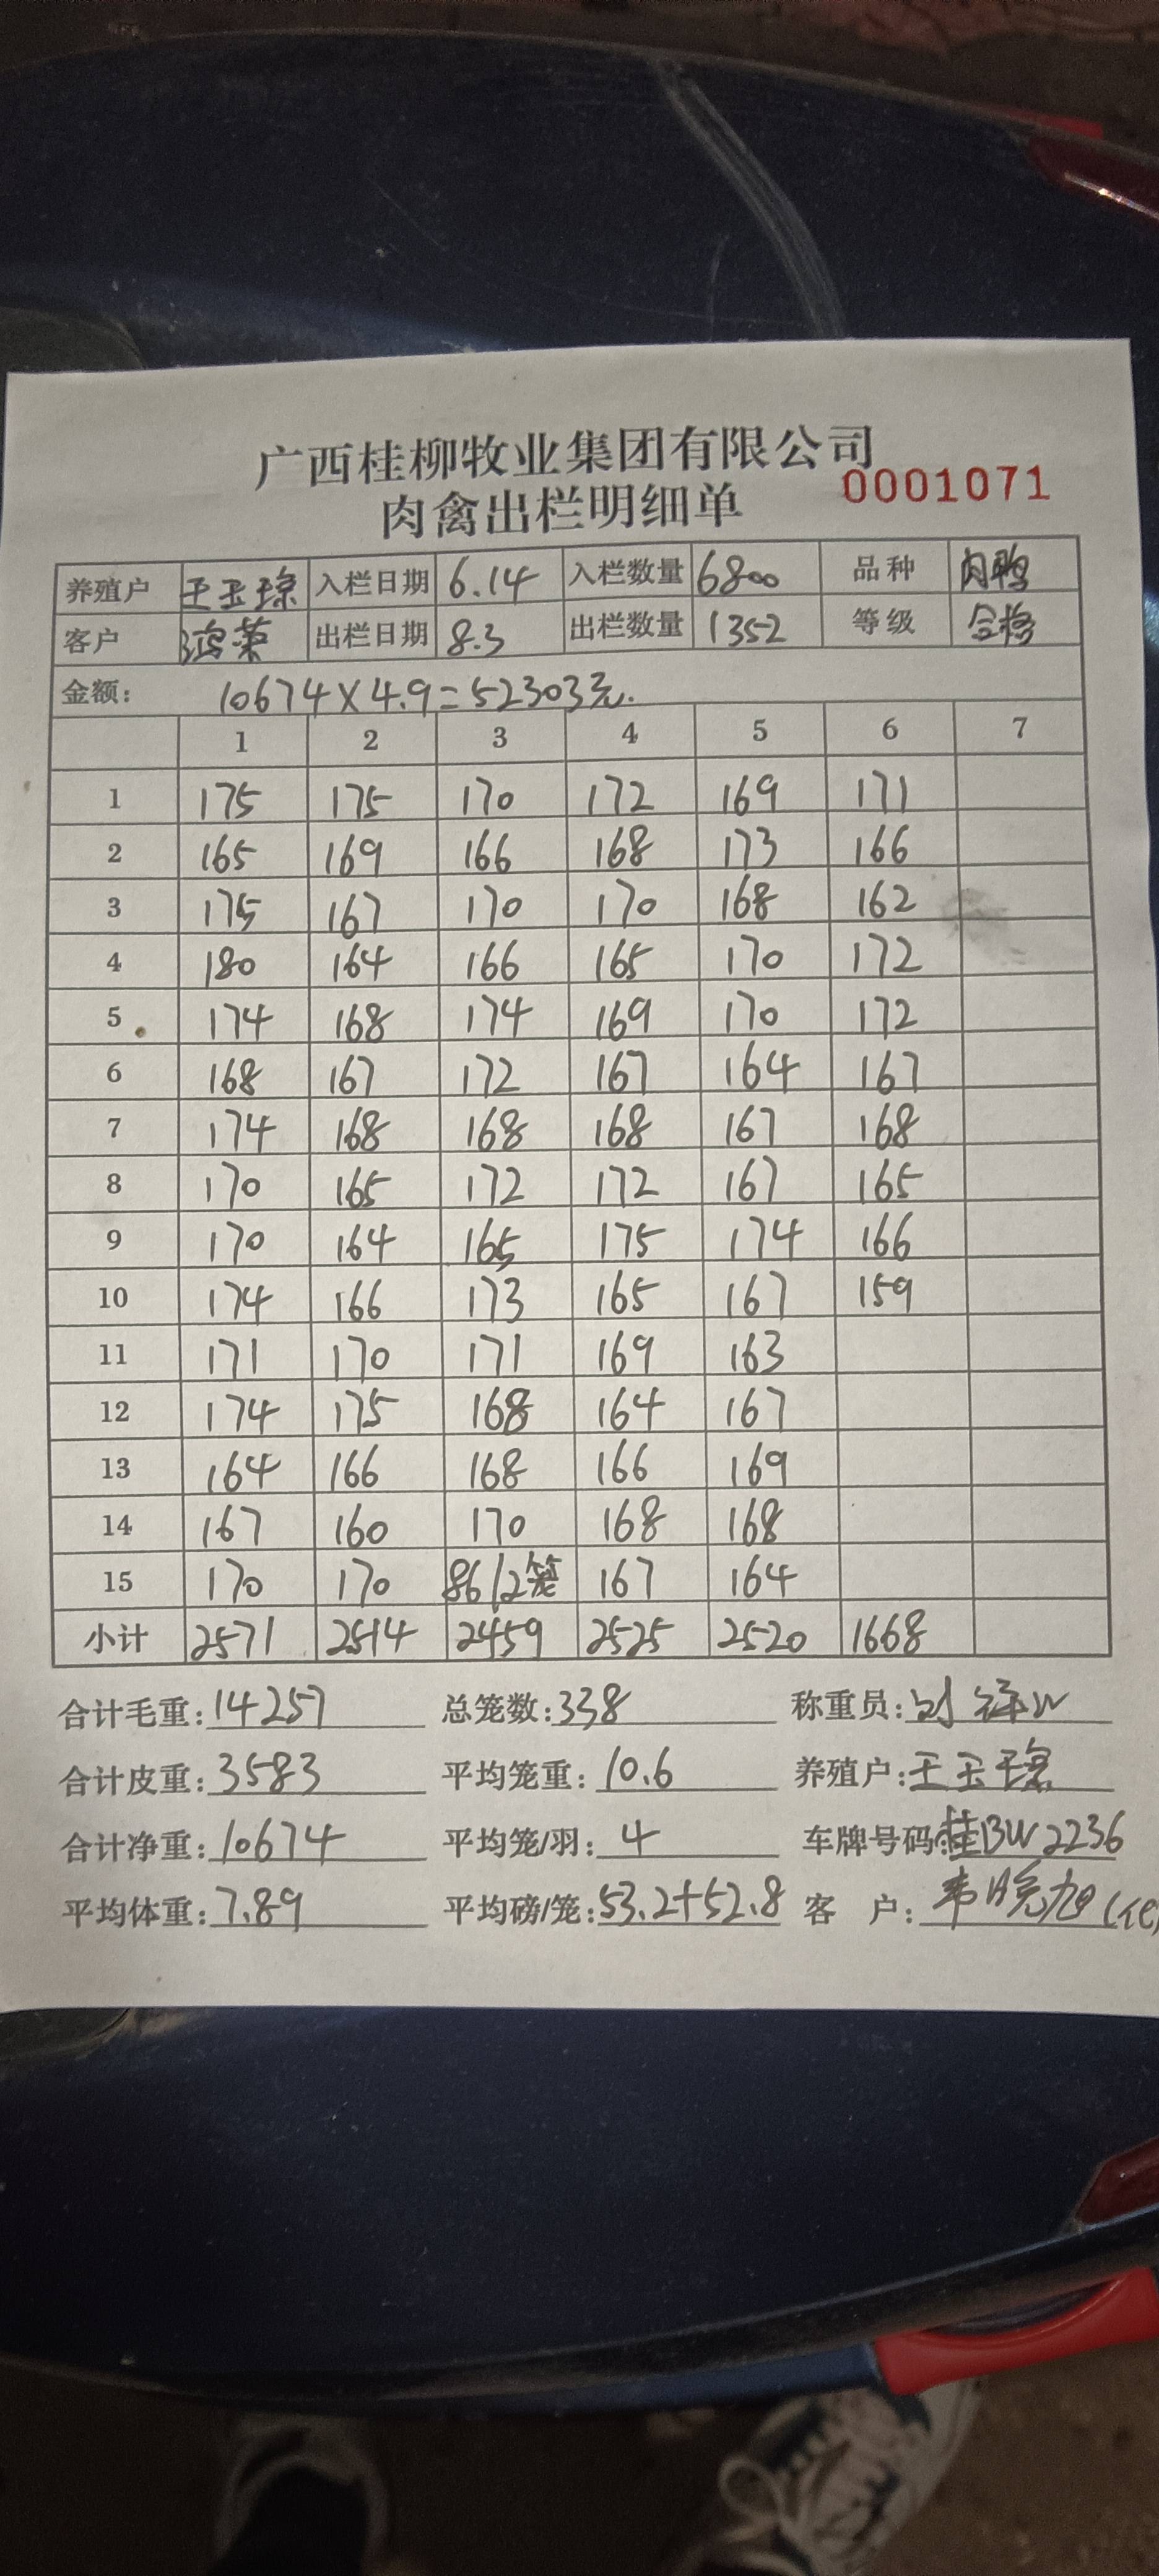 广西桂柳牧业集团有限公司
肉禽出栏明细单 0001071
养殖户 王玉琼 入栏日期 6.14 入栏数量 6800 品种 肉鸭
客户 鸿荣 出栏日期 8.3 出栏数量 1352 等级 合格
金额: 10674×4.9=52303元.
1 2 3 4 5 6 7
1 175 175 170 172 169 171
2 165 169 166 168 173 166
3 175 167 170 170 168 162
4 180 164 166 165 170 172
5 174 168 174 169 170 172
6 168 167 172 167 164 167
7 174 168 168 168 167 168
8 170 165 172 172 167 165
9 170 164 165 175 174 166
10 174 166 173 165 167 159
11 171 170 171 169 163
12 174 175 168 164 167
13 164 166 168 166 169
14 167 160 170 168 168
15 170 170 86/2笼 167 164
小计 2571 2514 2459 2525 2520 1668
合计毛重:14257 总笼数:338 称重员:刘
合计皮重:3583 平均笼重:10.6 养殖户:王玉琼
合计净重:10674 平均笼/羽:4 车牌号码:桂BW2236
平均体重:7.89 平均磅/笼:53.2+52.8 客 户:韦晓旭